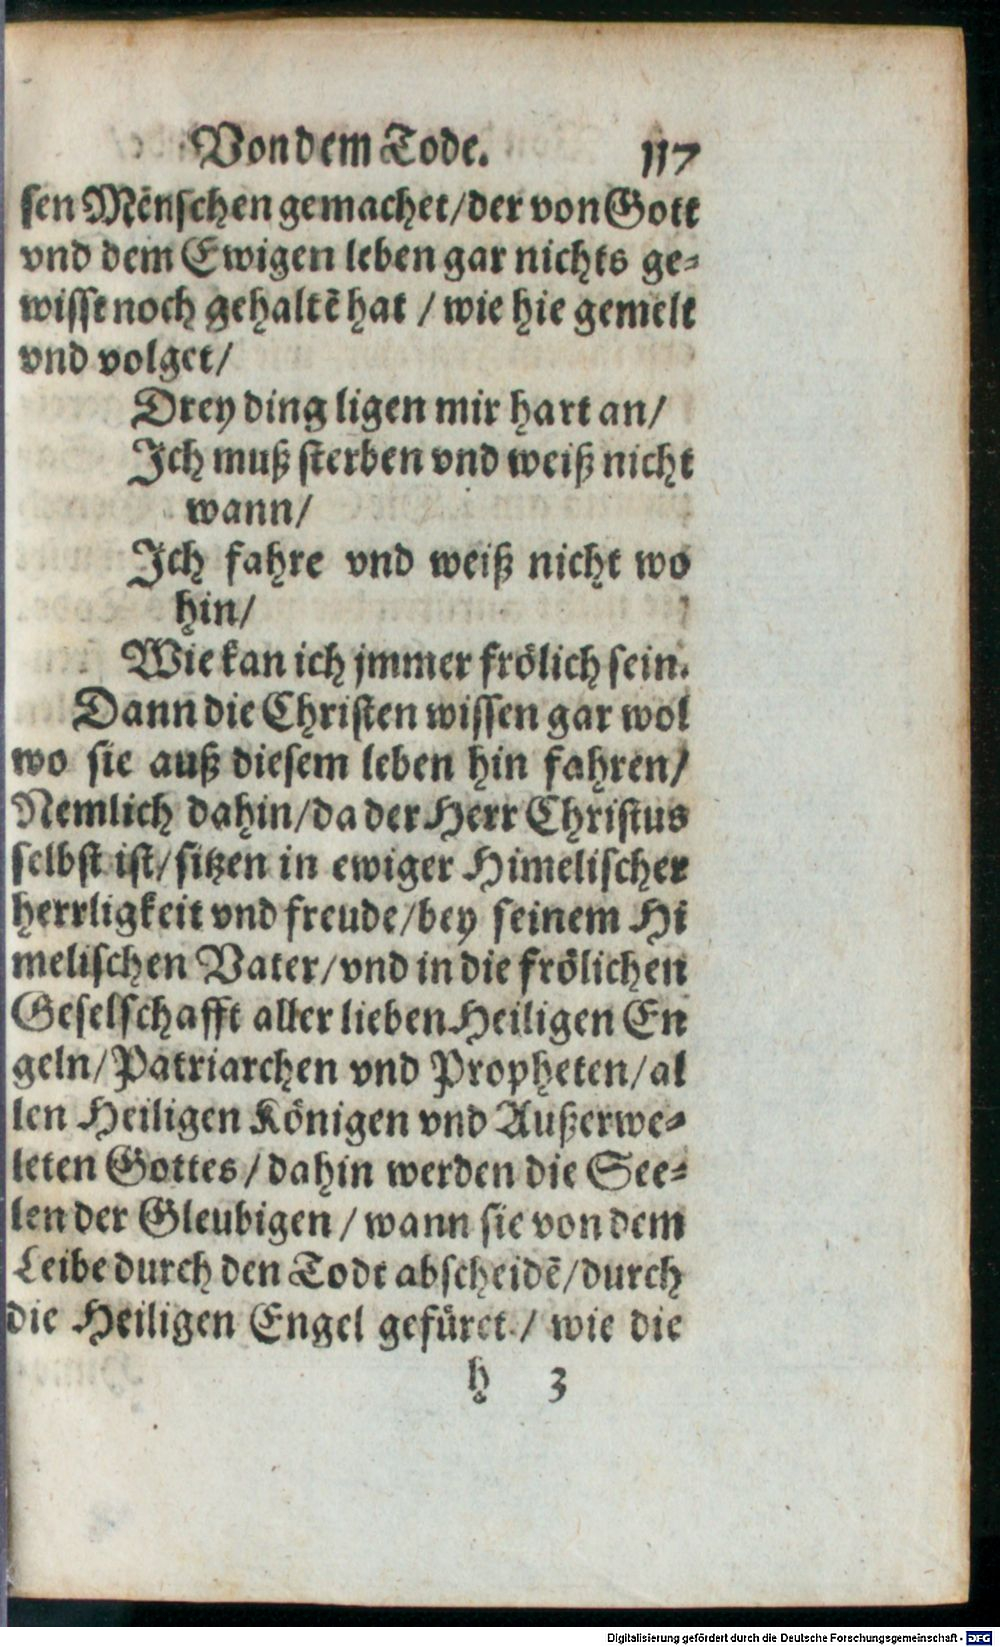 Von dem Tode. 117
sen Mēnschen gemachet/der von Gott
vnd dem Ewigen leben gar nichts ge-
wisst noch gehaltē hat / wie hie gemelt
vnd volget/
Drey ding ligen mir hart an/
Ich muß sterben vnd weiß nicht
wann/
Ich fahre vnd weiß nicht wo
hin/
Wie kan ich jmmer frölich sein.
Dann die Christen wissen gar wol
wo sie auß diesem leben hin fahren/
Nemlich dahin/da der Herr Christus
selbst ist/sitzen in ewiger Himelischer
herrligkeit vnd freude/bey seinem Hi
melischen Vater/vnd in die frölichen
Geselschafft aller lieben Heiligen En
geln/Patriarchen vnd Propheten/al
len Heiligen Königen vnd Außerwe-
leten Gottes/dahin werden die See-
len der Gleubigen/wann sie von dem
Leibe durch den Todt abscheidē/durch
die Heiligen Engel gefüret/ wie die
h 3
Digitalisierung gefördert durch die Deutsche Forschungsgemeinschaft - DFG